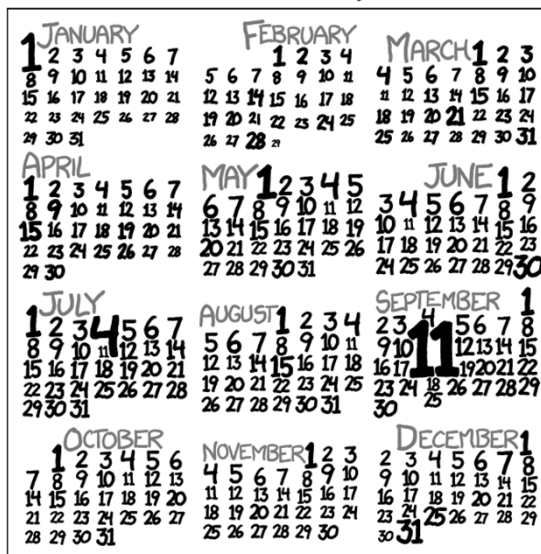 JANUARY
1 2 3 4 5 6 7
8 9 10 11 12 13 14
15 16 17 18 19 20 21
22 23 24 25 26 27 28
29 30 31
FEBRUARY
1 2 3 4
5 6 7 8 9 10 11
12 13 14 15 16 17 18
19 20 21 22 23 24 25
26 27 28 29
MARCH 1 2 3
4 5 6 7 8 9 10
11 12 13 14 15 16 17
18 19 20 21 22 23 24
25 26 27 28 29 30 31
APRIL
1 2 3 4 5 6 7
8 9 10 11 12 13 14
15 16 17 18 19 20 21
22 23 24 25 26 27 28
29 30
MAY 1 2 3 4 5
6 7 8 9 10 11 12
13 14 15 16 17 18 19
20 21 22 23 24 25 26
27 28 29 30 31
JUNE 1 2
3 4 5 6 7 8 9
10 11 12 13 14 15 16
17 18 19 20 21 22 23
24 25 26 27 28 29 30
JULY
1 2 3 4 5 6 7
8 9 10 11 12 13 14
15 16 17 18 19 20 21
22 23 24 25 26 27 28
29 30 31
AUGUST 1 2 3 4
5 6 7 8 9 10 11
12 13 14 15 16 17 18
19 20 21 22 23 24 25
26 27 28 29 30 31
SEPTEMBER 1
2 3 4 5 6 7 8
9 10 11 12 13 14 15
16 17 18 19 20 21 22
23 24 25 26 27 28 29
30
OCTOBER
1 2 3 4 5 6
7 8 9 10 11 12 13
14 15 16 17 18 19 20
21 22 23 24 25 26 27
28 29 30 31
NOVEMBER 1 2 3
4 5 6 7 8 9 10
11 12 13 14 15 16 17
18 19 20 21 22 23 24
25 26 27 28 29 30
DECEMBER 1
2 3 4 5 6 7 8
9 10 11 12 13 14 15
16 17 18 19 20 21 22
23 24 25 26 27 28 29
30 31